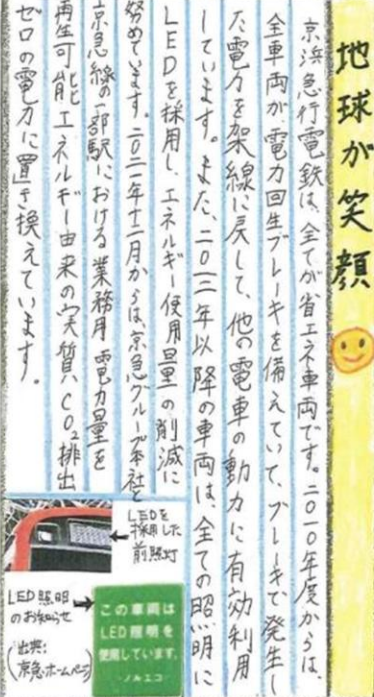 地球が笑顔
京浜急行電鉄は、全てが省エネ車両です。二〇一〇年度からは、
全車両が電力回生ブレーキを備えていて、ブレーキで発生し
た電力を架線に戻して、他の電車の動力に有効利用
しています。また、二〇一三年以降の車両は、全ての照明に
LEDを採用し、エネルギー使用量の削減に
努めています。二〇二一年十二月からは、京急グループ本社と
京急線の一部駅における業務用電力量を
再生可能エネルギー由来の実質CO2排出
ゼロの電力に置き換えています。
LEDを
採用した
前照灯
LED照明
のお知らせ
(出典:
京急ホームページ)
この車両は
LED照明を
使用しています。
ノルエコ